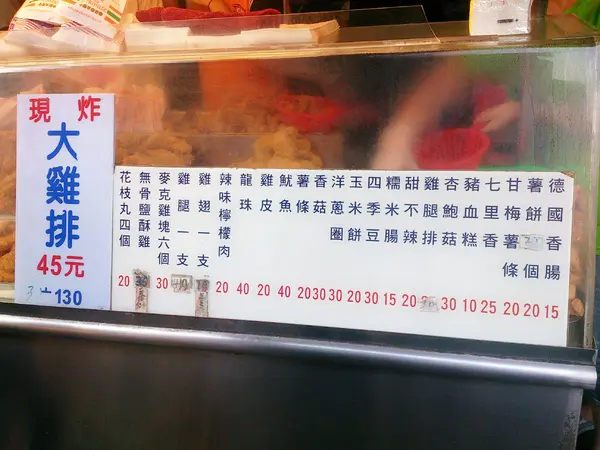 現炸
大雞排
45元
130
花枝丸四個 20
無骨鹽酥雞 30
麥克雞塊六個 30
雞腿一支
雞翅一支
辣味檸檬肉 20
龍珠 40
雞皮 20
魷魚 40
薯條 20
香菇 30
洋蔥圈 30
玉米餅 20
四季豆 30
糯米腸 15
甜不辣 20
雞腿排
杏鮑菇 30
豬血糕 10
七里香 25
甘梅薯條 20
薯餅 個 20
德國香腸 15